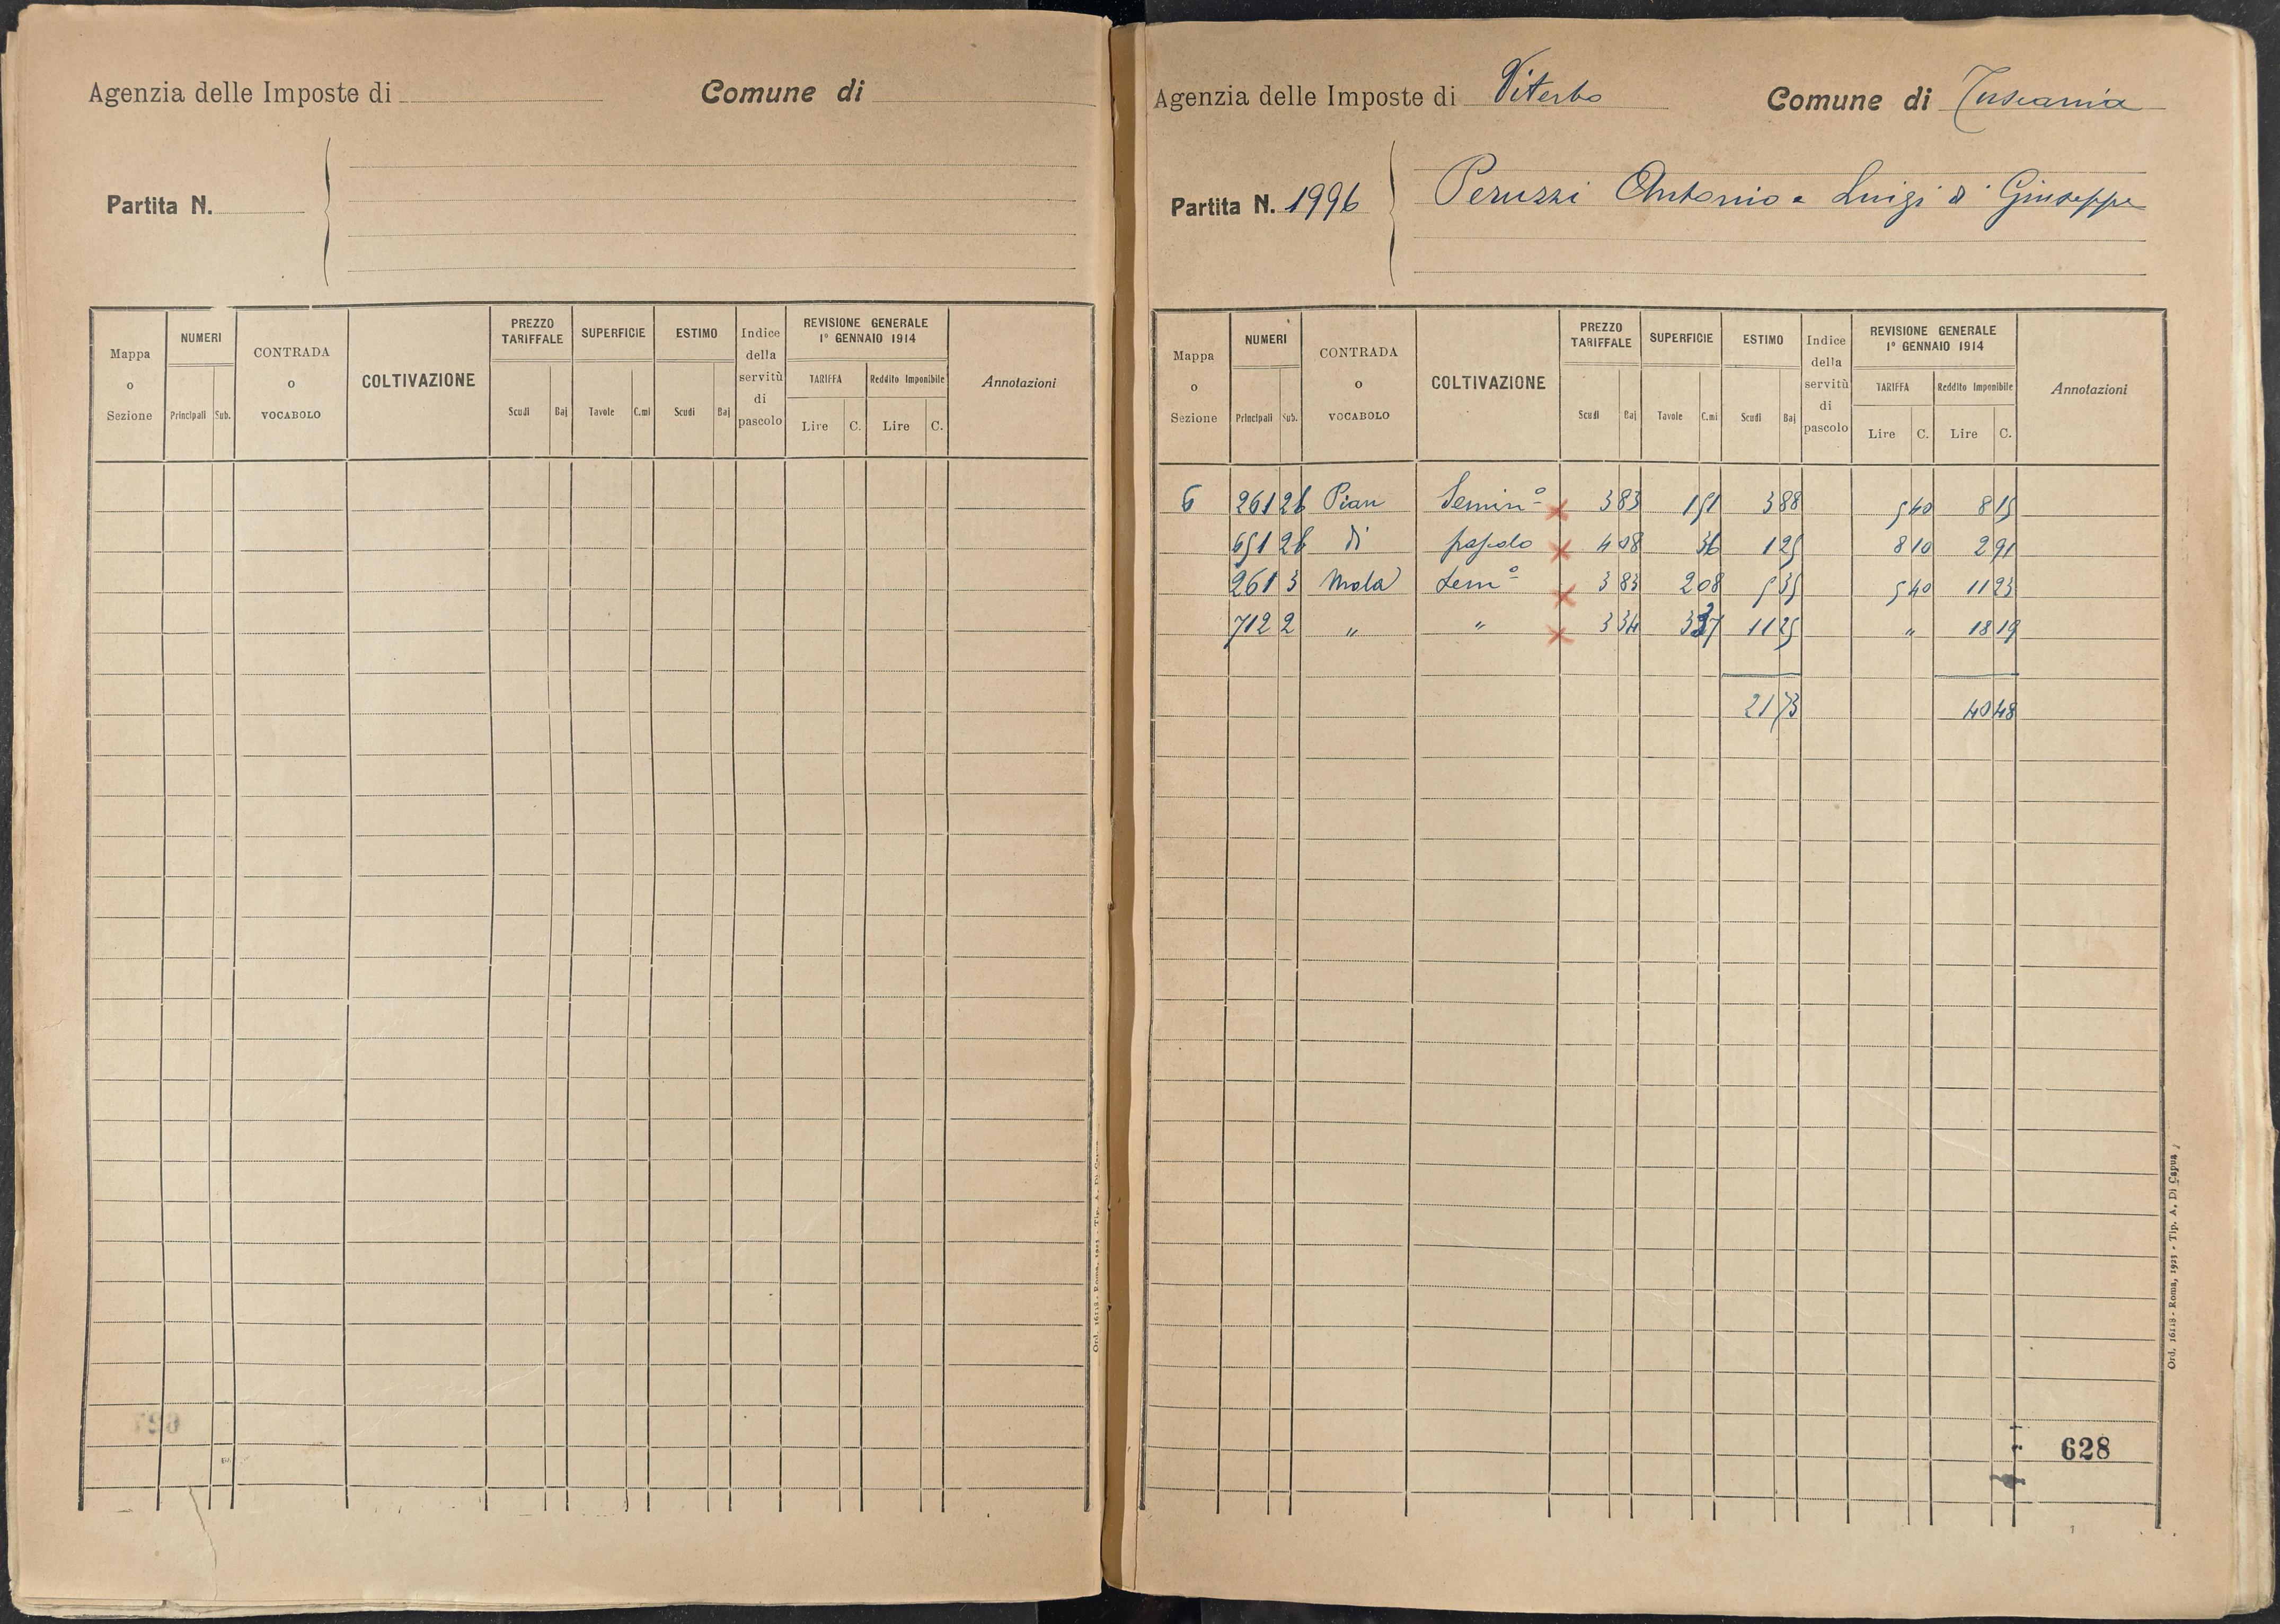 Agenzia delle Imposte di
Comune di
Partita N.
Mappa o Sezione
NUMERI
Principali Sub.
CONTRADA o VOCABOLO
COLTIVAZIONE
PREZZO TARIFFALE
Scudi Baj
SUPERFICIE
Tavole C.mi
ESTIMO
Scudi Baj
Indice della servitù di pascolo
REVISIONE GENERALE 1° GENNAIO 1914
TARIFFA Reddito Imponibile
Lire C. Lire C.
Annotazioni
Agenzia delle Imposte di Viterbo
Comune di Tuscania
Partita N. 1996
Peruzzi Antonio e Luigi di Giuseppe
Mappa o Sezione
NUMERI
Principali Sub.
CONTRADA o VOCABOLO
COLTIVAZIONE
PREZZO TARIFFALE
Scudi Baj
SUPERFICIE
Tavole C.mi
ESTIMO
Scudi Baj
Indice della servitù di pascolo
REVISIONE GENERALE 1° GENNAIO 1914
TARIFFA Reddito Imponibile
Lire C. Lire C.
Annotazioni
6 261 2b Pian Semin° x 3 83 1 51 3 88 5 40 8 15
651 2b di x 4 08 36 1 25 8 10 2 91
261 3 Mola Sem° x 3 83 2 08 5 35 5 40 11 23
712 2 " " x 3 34 3 37 11 25 " 18 19
21 73 40 48
628
Ord. 16118 - Roma, 1923 - Tip. A. Di Capua